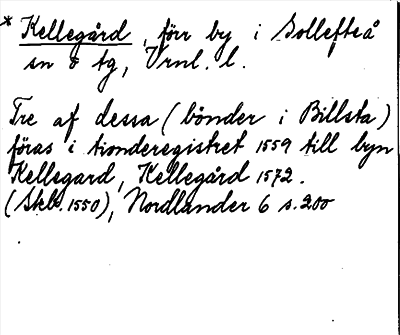 * Kellegård, förr by i Sollefteå
sn o tg, Vrnl. l.
Tre af dessa (bönder i Billsta)
föras i tionderegistret 1559 till byn
Kellsgard, Kellegård 1572.
(Skb. 1550), Nordlander 6 s. 200